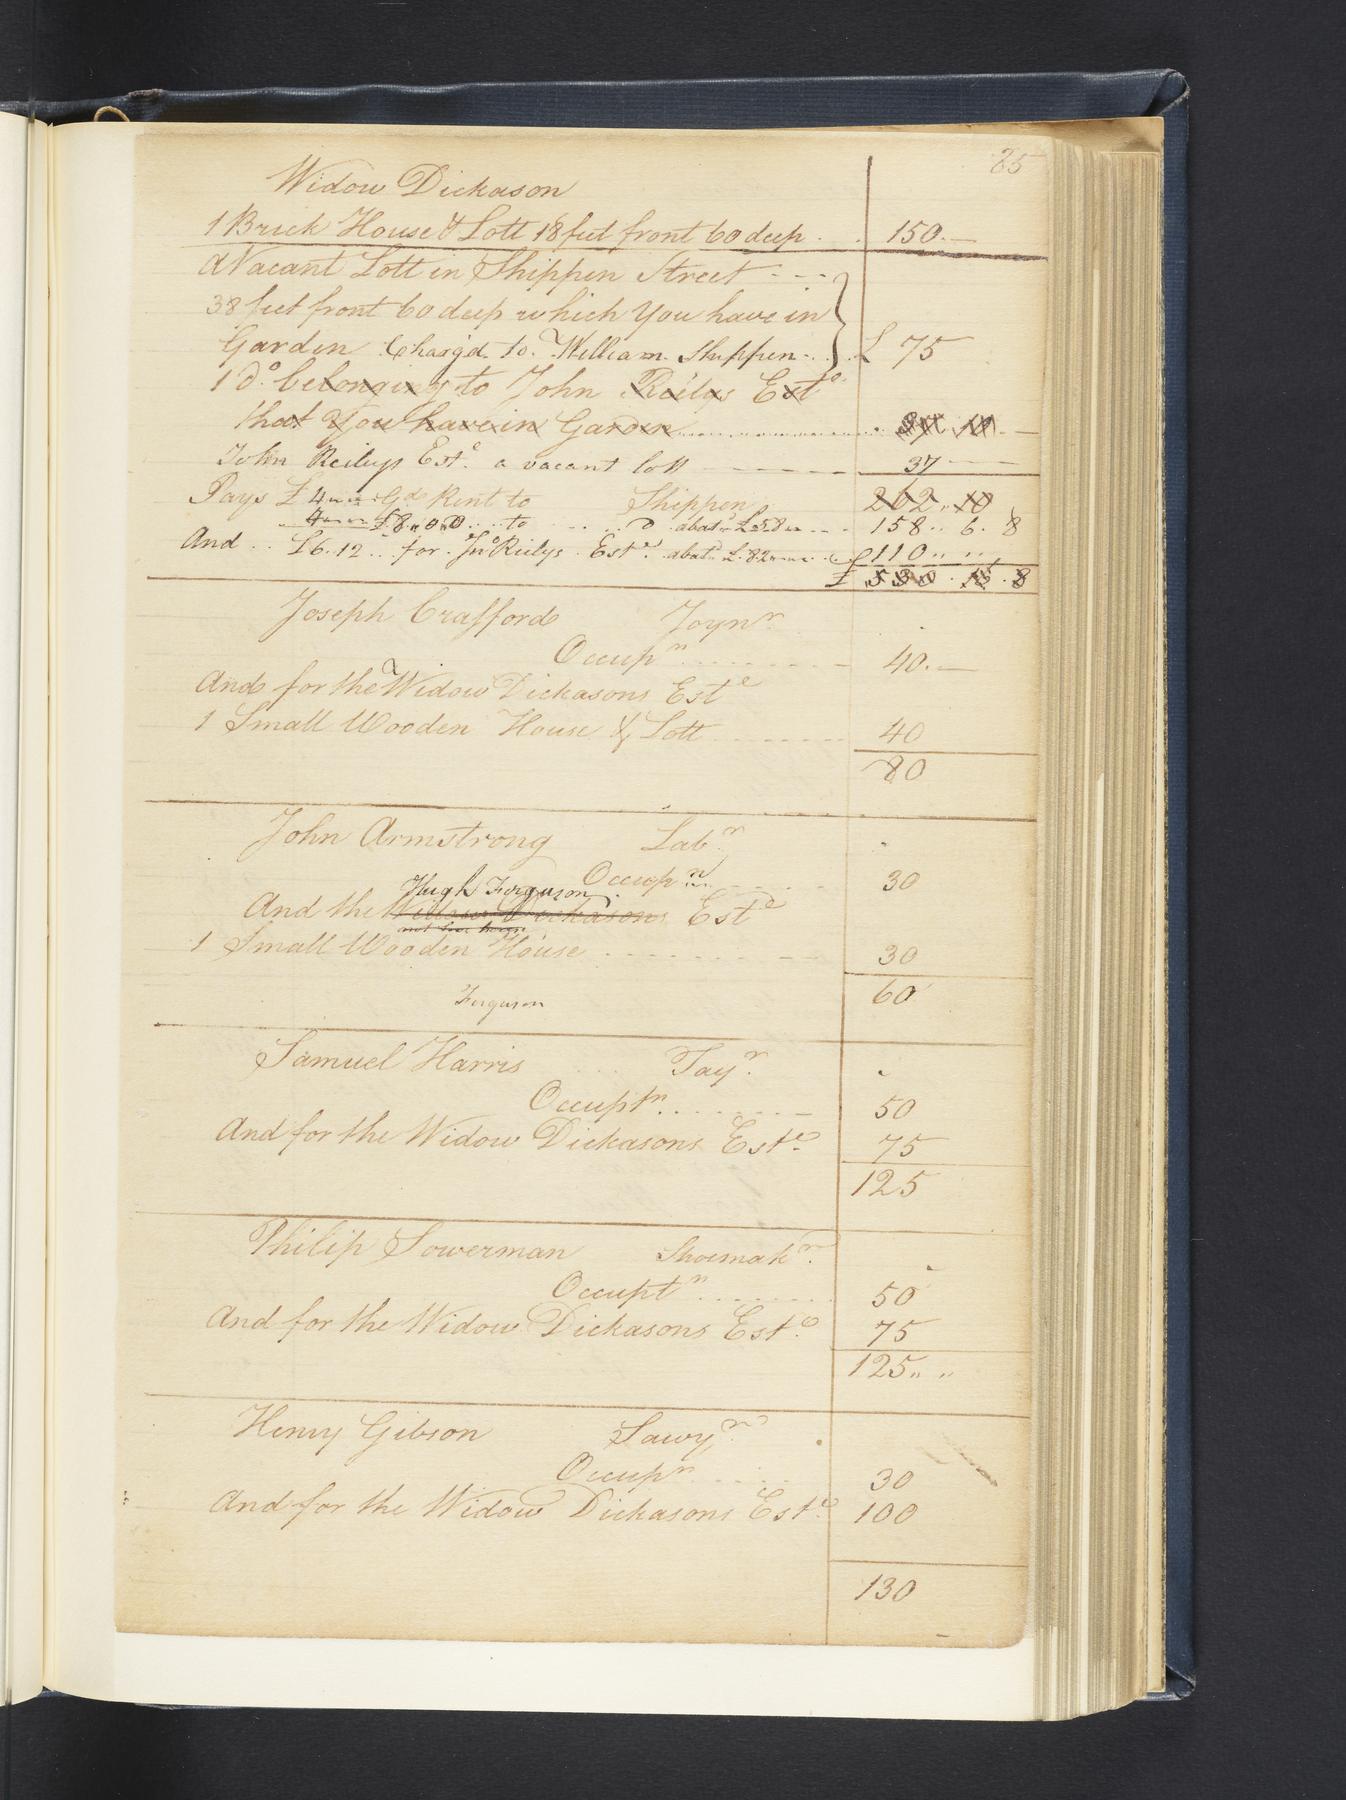 85
Widow Dickason
1 Brick House & Lott 18 feet front 60 deep . . 150.—
A Vacant Lott in Shippen Street - - -
38 feet front 60 deep which You have in
Garden Charg'd to William Shippen - . . £ 75
1 Do. belonging to John Reilys Este
that You have in Garden
John Reilys Este. a vacant lott — — — — 37 —
Pays £ 4 Gd Rent to Shippen 262 " 10
£8 " 0 " 0 . . to . . . Do abat £58 " — - 158 " 6 . 8
And . . £6 . 12 . . for Jno Reilys Este abat £ 82 110 " "
£ 530 . 15 . 8
Joseph Crafford Joynr.
Occupn . . . . . . . 40.—
And for the Widow Dickasons Este
1 Small Wooden House & Lott . . . . . . 40
80
John Armstrong Labr.
Occupn . . . . 30
Hugh Ferguson
And the Widow Dickasons Este
1 Small Wooden House . . . . . . . . 30
60
Ferguson
Samuel Harris Tayr.
Occuptn. . . . . . . — 50
And for the Widow Dickasons Este. 75
125
Philip Sowerman Shoemakr.
Occuptn . . . . . . . 50
And for the Widow Dickasons Este. 75
125 " "
Henry Gibson Sawyr.
Occupn . . . . . 30
And for the Widow Dickasons Este. 100
130